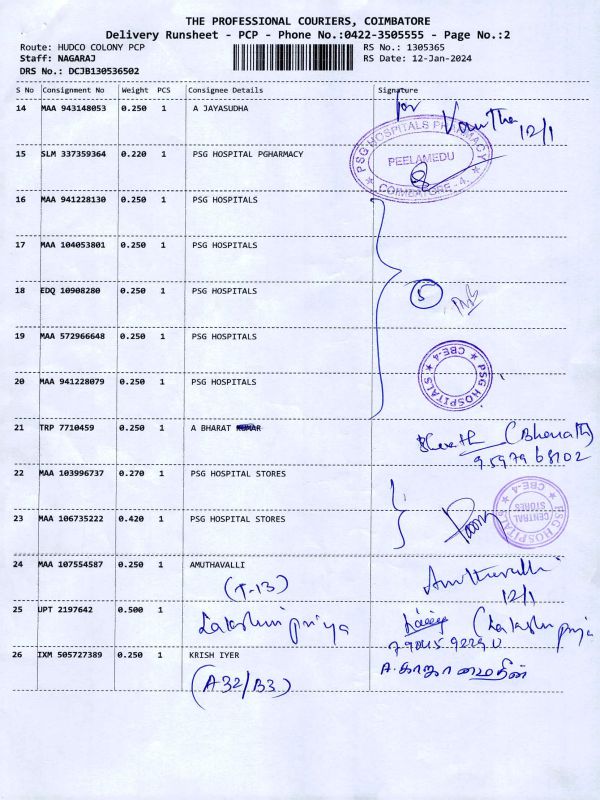 THE PROFESSIONAL COURIERS, COIMBATORE
Delivery Runsheet - PCP - Phone No.:0422-3505555 - Page No.:2
Route: HUDCO COLONY PCP
RS No.: 1305365
Staff: NAGARAJ
RS Date: 12-Jan-2024
DRS No.: DCJB130536502
S No Consignment No Weight PCS Consignee Details Signature
14 MAA 943148053 0.250 1 A JAYASUDHA
for
12/1
PSG HOSPITALS PHARMACY
PEELAMEDU
COIMBATORE-4.
15 SLM 337359364 0.220 1 PSG HOSPITAL PGHARMACY
16 MAA 941228130 0.250 1 PSG HOSPITALS
17 MAA 104053801 0.250 1 PSG HOSPITALS
18 EDQ 10908280 0.250 1 PSG HOSPITALS
5
19 MAA 572966648 0.250 1 PSG HOSPITALS
PSG HOSPITALS
CBE-4
20 MAA 941228079 0.250 1 PSG HOSPITALS
21 TRP 7710459 0.250 1 A BHARAT KUMAR
Bharath (Bharath)
95979 68102
22 MAA 103996737 0.270 1 PSG HOSPITAL STORES
PSG HOSPITALS
CENTRAL STORES
CBE-4
23 MAA 106735222 0.420 1 PSG HOSPITAL STORES
24 MAA 107554587 0.250 1 AMUTHAVALLI
(T-13)
Amuthavalli
12/1
25 UPT 2197642 0.500 1 Lakshmi priya
26 IXM 505727389 0.250 1 KRISH IYER
(A32/B3)
A. காதர் மைதீன்